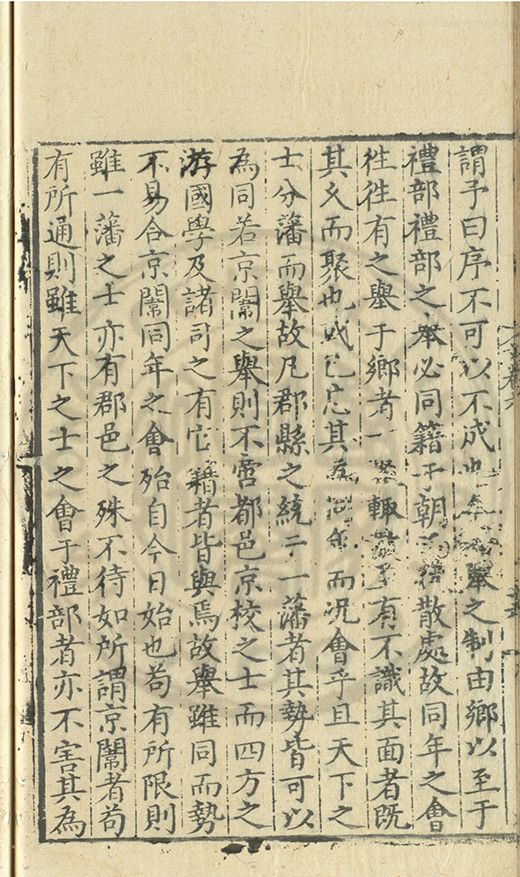 謂予曰序不可以不成也舉之制由鄉以至于
禮部禮部之舉必同籍于朝散處故同年之會
徃徃有之舉于鄉者一輒有不識其面者既
其久而聚也或已忘其為同年而況會乎且天下之
士分藩而舉故凡郡縣之統于一藩者其勢皆可以
為同若京闈之舉則不啻都邑京校之士而四方之
游國學及諸司之有它籍者皆與焉故舉雖同而勢
不易合京闈同年之會殆自今日始也苟有所限則
雖一藩之士亦有郡邑之殊不待如所謂京闈者苟
有所通則雖天下之士之會于禮部者亦不害其為